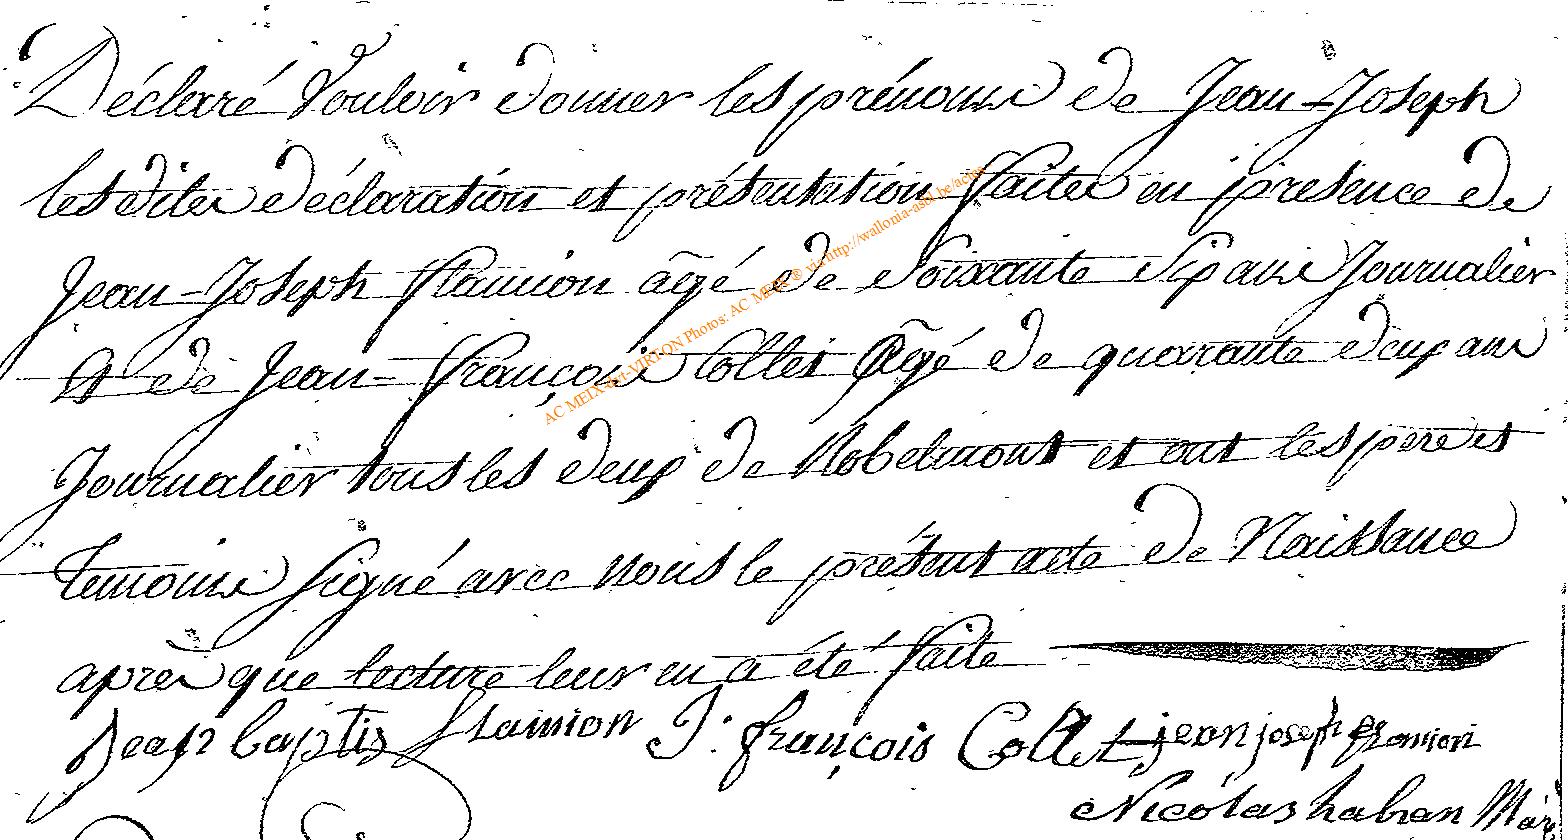 Déclaré Vouloir donner les prénoms de Jean-Joseph
lesdites déclaration et présentation faites en présence de
Jean-Joseph flamion âgé de Soixante Six ans Journalier
& de Jean-françois Collet Âgé de quarante deux ans
Journalier tous les deux de Robelmont et ont les pere et
temoins signé avec nous le présent acte de Naissance
après que lecture leur en a été faite
Jean baptis flamion J. françois Collet jean joseph flamion
Nicolas habran
AC MEIX-dvt-VIRTON Photos: AC MEIX ® via http://wallonia-asbl.be/actes